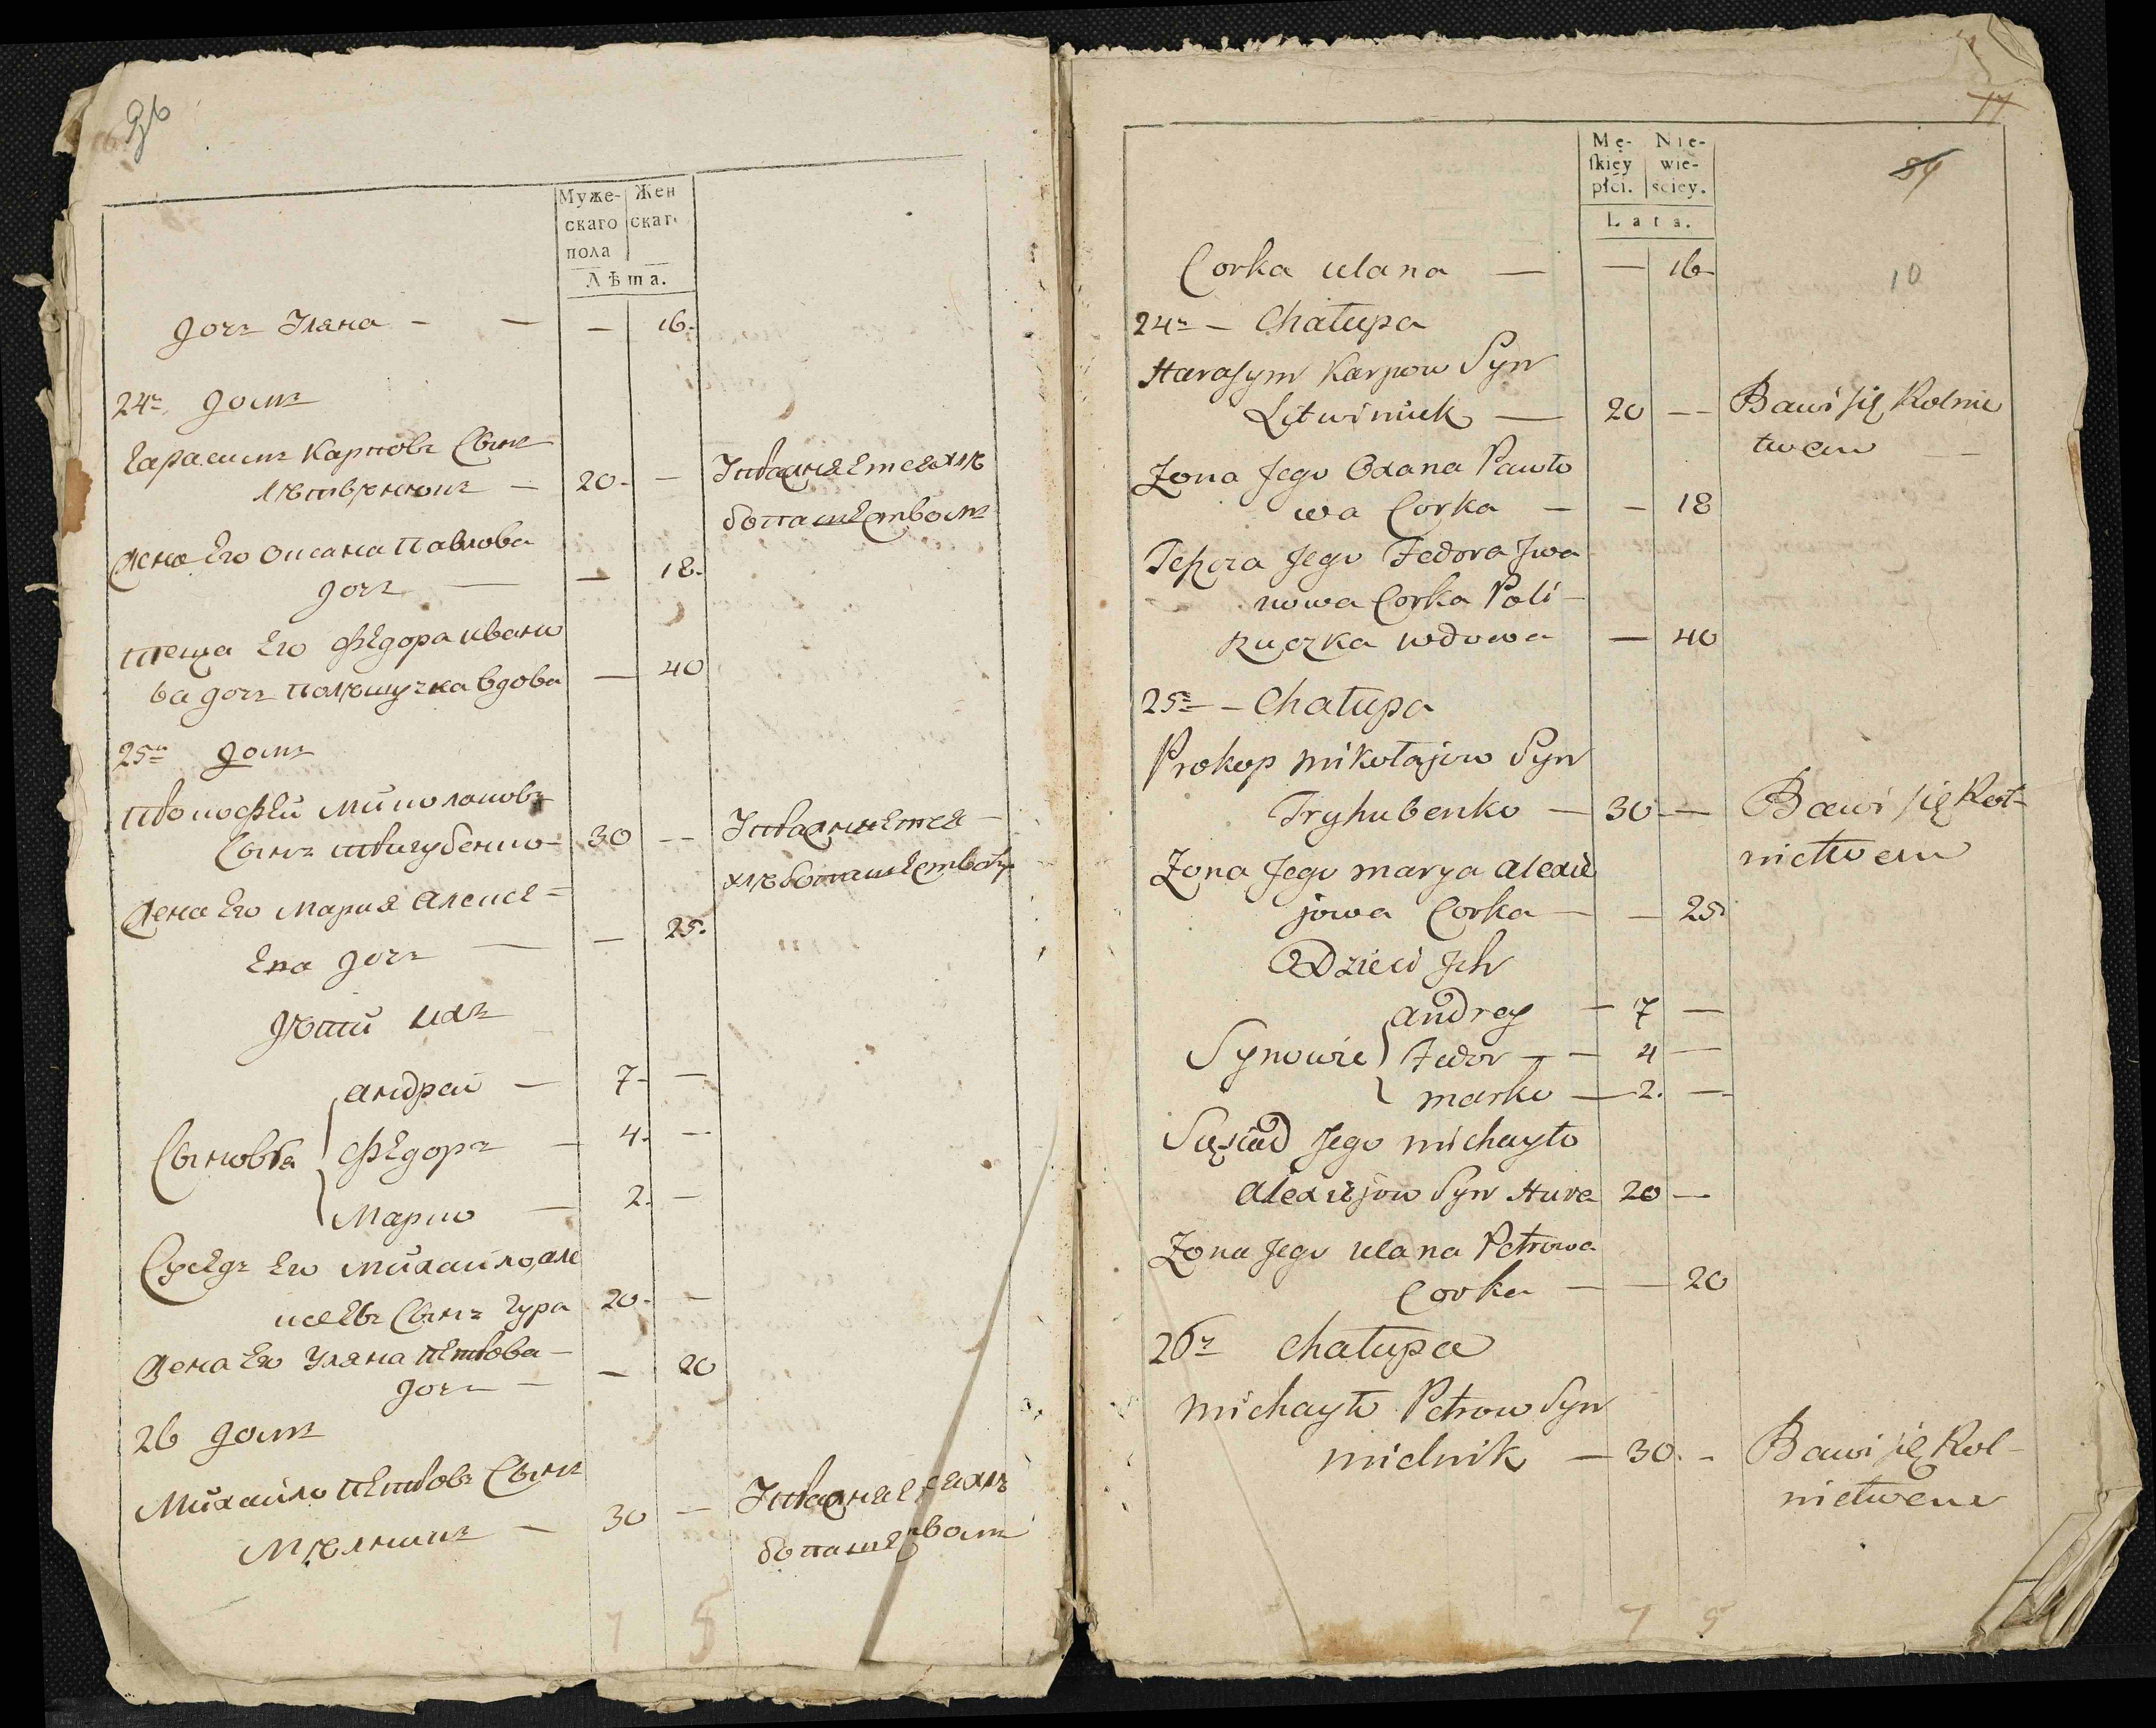 96
Муже- Жен
скаго скаг
пола
Лѣта.
дочъ Уляна - — — 16.
24ъ домъ
Гарасимъ Карповъ Сынъ
Лѣтвѣнюкъ — 20. — Упражняется хлѣ
бопашествомъ
жена Его Оксана Павлова
дочъ — — 18.
теща Его Федора Ивано
ва дочъ Полѣщучка вдова — 40
25ъ домъ
Миколаовъ
Сынъ Тригубенко 30 — Упражняется
хлѣбопашествомъ
жена Его Мария Алексе=
Ева дочъ — — 25.
Дѣти ихъ
Андрей — 7. —
Сыновья Федоръ — 4. —
Марко — 2. —
Сусѣдъ Его Михайло Але
ксеевъ Сынъ Гура 20. —
жена Его Уляна Петрова —
дочъ — — 20
26 домъ
Михайло Петровъ Сынъ
Мѣлникъ — 30 — Упражняется хлѣ
бопашествомъ
7 5
77
84
Mę- Nie-
skiey wie-
płci. sciey.
Lata.
10
Corka Ulana — — 16
24ъ — Chałupa
Harasym Karpow Syn
Litwiniuk — 20 — Bawi się Rolnic
twem
Zona Jego Oxana Pawło
wa Corka — — 18
Teszcza Jego Fedora Iwa
nowa Corka Poli-
szuczka wdowa — 40
25ъ — Chałupa
Prokop Mikołajow Syn
Tryhubenko — 30 — Bawi się Rol-
nictwem
Zona Jego Marya Alexie
jowa Corka — — 25
Dzieci Ich
Andrey — 7 —
Synowie Fedor — 4 —
Marko — 2. —
Sąsiad Jego Michayło
Alexiejow Syn Hura 20 —
Zona Jego Ulana Petrowa
Corka — — 20
26ъ Chałupa
Michayło Petrow Syn
Mielnik — 30. - Bawi się Rol-
nictwem
7 5